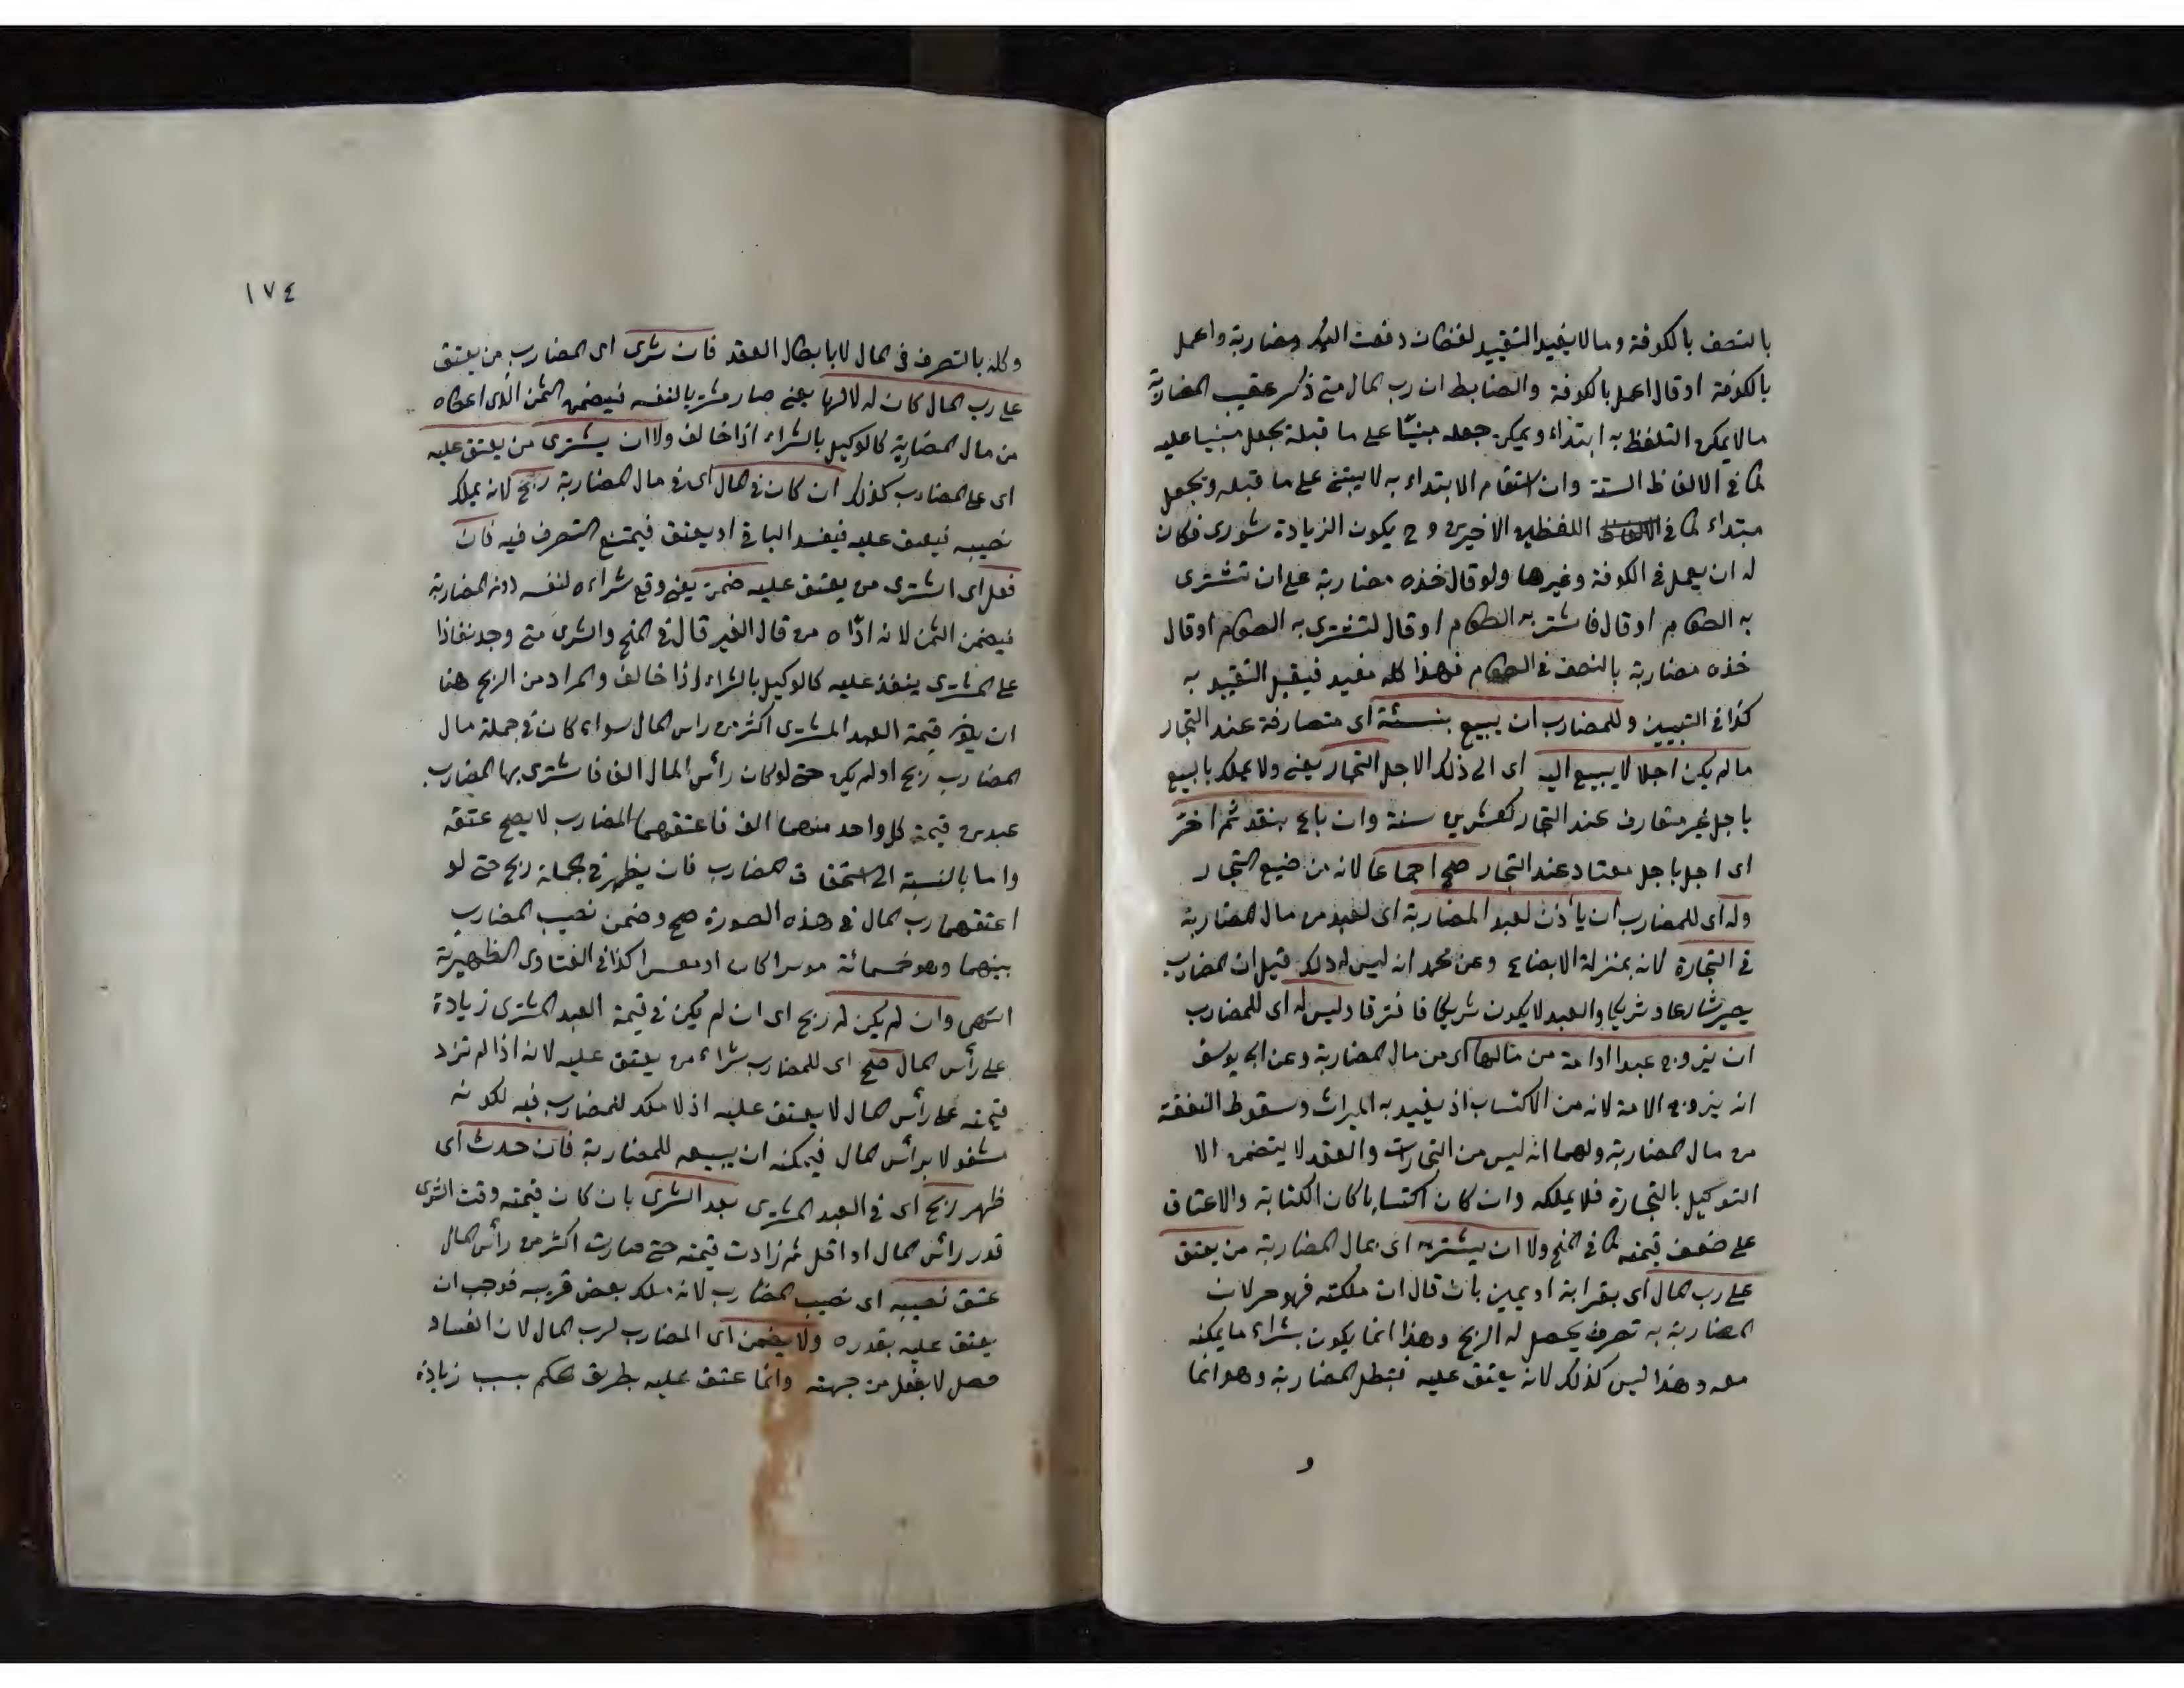 بالنصف بالكوفة وما لا يفيد التقييد لفظان دفعت اليك مضاربة واعمل
بالكوفة او قال اعمل بالكوفة والضابط ان رب المال متى ذكر عقيب المضاربة
ما لا يمكن التلفظ به ابتداء ويمكن جعله مبنيّا على ما قبله يجعل مبنيا عليه
كما في الالفاظ الستة وان استقام الابتداء به لا يبتنى على ما قبله ويجعل
مبتداء كما في اللفظين الاخيرين وح يكون الزيادة شورى فكان
له ان يعمل في الكوفة وغيرها ولو قال خذه مضاربة على ان تشترى
به الطعام او قال فاشتر به الطعام او قال لتشترى به الطعام او قال
خذه مضاربة بالنصف في الطعام فهذا كله مفيد فيقبل التقييد به
كذا في التبيين وللمضارب ان يبيع بنسئة اى متعارفة عند التجار
ما لم يكن اجلا لا يبيع اليه اى الى ذلك الاجل التجار يعنى ولا يملك بالبيع
باجل غير متعارف عند التجار كعشرين سنة وان باع بنقد ثم اخّر
اى اجل باجل معتاد عند التجار صح اجماعا لانه من ضيع التجار
وله اى للمضارب ان يأذن لعبد المضاربة اى لعبد من مال المضاربة
في التجارة لانه بمنزلة الابضاع وعن محمد انه ليس له ذلك قيل ان المضارب
يصير شريكا والعبد لا يكون شريكا فافترقا وليس له اى للمضارب
ان يزوج عبدا او امة من مالها اى من مال المضاربة وعن ابى يوسف
انه يزوج الامة لانه من الاكتساب اذ يفيد به الميراث وسقوط النفقة
من مال المضاربة ولهما انه ليس من التجارات والعقد لا يتضمن الا
التوكيل بالتجارة فلا يملكه وان كان اكتسابا كان الكتابة والاعتاق
على ضعف قيمته كما في المنح ولا ان يشترى به اى بمال المضاربة من يعتق
على رب المال اى بقرابة او يمين بان قال ان ملكته فهو حر لان
المضاربة به تصرف يحصل له الربح وهذا انما يكون بشراء ما يمكنه
معه وهذا ليس كذلك لانه يعتق عليه فتبطل المضاربة وهو انما
و
١٧٤
وكله بالتصرف في المال لا بابطال العقد فان شرى اى المضارب من يعتق
على رب المال كان له لا لها يعنى صار مشتريا لنفسه فيضمن الثمن الذى اعطاه
من مال المضاربة كالوكيل بالشراء اذا خالف ولا ان يشترى من يعتق عليه
اى على المضارب كذلك ان كان في المال اى في مال المضاربة ربح لانه يملك
نصيبه فيعتق عليه فيفسد الباقى او يعتق فيمتنع التصرف فيه فان
فعل اى اشترى من يعتق عليه ضمن يعنى وقع شراءه لنفسه دون المضاربة
فيضمن الثمن لانه ادّاه من مال الغير قال في المنح والشرى متى وجد نفاذا
على المشترى ينفذ عليه كالوكيل بالشراء اذا خالف والمراد من الربح هنا
ان يكون قيمة العبد المشترى اكثر من راس المال سواء كان في جملة مال
المضارب ربح او لم يكن حتى لو كان رأس المال الف فاشترى بها المضارب
عبدين قيمة كل واحد منهما الف فاعتقهما المضارب لا يصح عتقه
واما بالنسبة الى استحقاق المضارب فان يظهر في الجملة ربح حتى لو
اعتقهما رب المال في هذه الصورة صح وضمن نصيب المضارب
بينهما وهو خمسمائة موسرا كان او معسرا كذا في الفتاوى الظهيرية
انتهى وان لم يكن له ربح اى ان لم يكن في قيمة العبد المشترى زيادة
على رأس المال صح اى للمضارب شراء من يعتق عليه لانه اذا لم تزد
قيمته على رأس المال لا يعتق عليه اذ لا ملك للمضارب فيه لكونه
مشغولا برأس المال فيمكنه ان يبيعه للمضاربة فان حدث اى
ظهر ربح اى في العبد المشترى بعد الشرى بان كان قيمته وقت الشرى
قدر رائس المال او اقل ثم زادت قيمته حتى صارت اكثر من رأس المال
عتق نصيبه اى نصيب المضارب لانه ملك بعض قريبه فوجب ان
يعتق عليه بقدره ولا يضمن اى المضارب لرب المال لان الفساد
حصل لا بفعل من جهته وانما عتق عليه بطريق الحكم بسبب زيادة